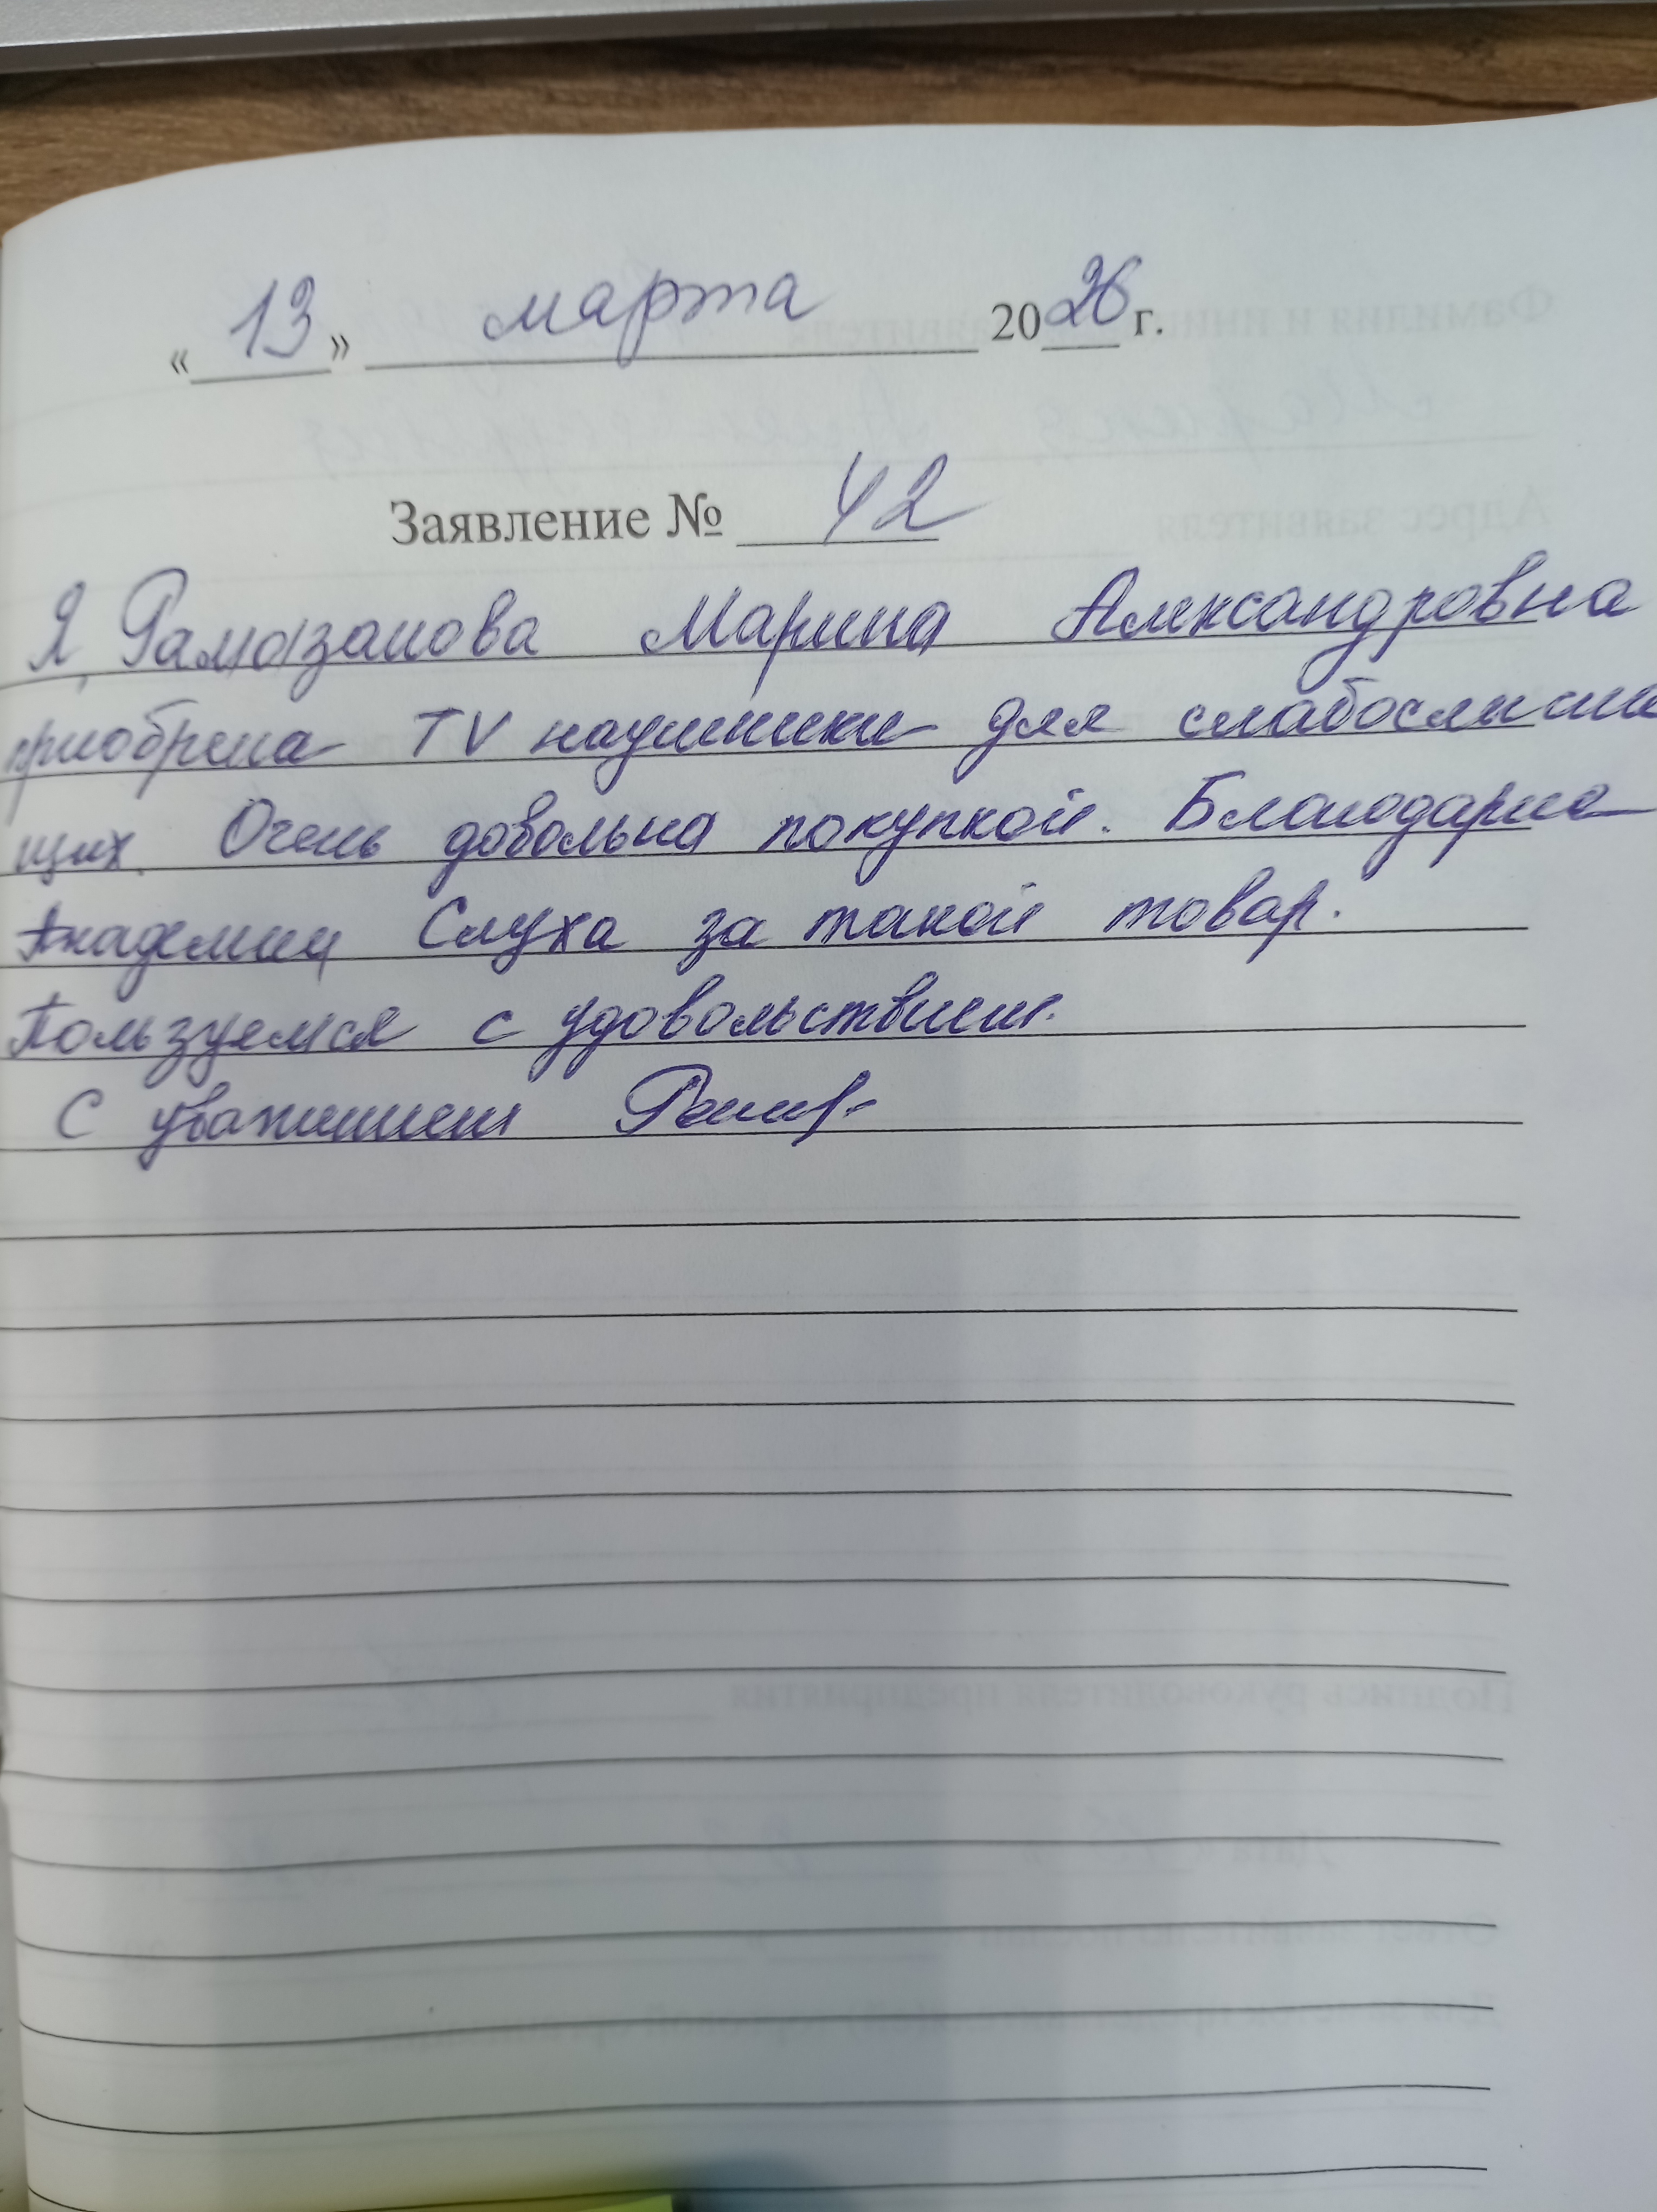 « 13 » марта 2026 г.
Заявление № 42
Я, Рамазанова Марина Александровна
приобрела TV наушники для слабослыша
щих. Очень довольна покупкой. Благодарна
Академии Слуха за такой товар.
Пользуемся с удовольствием.
С уважением